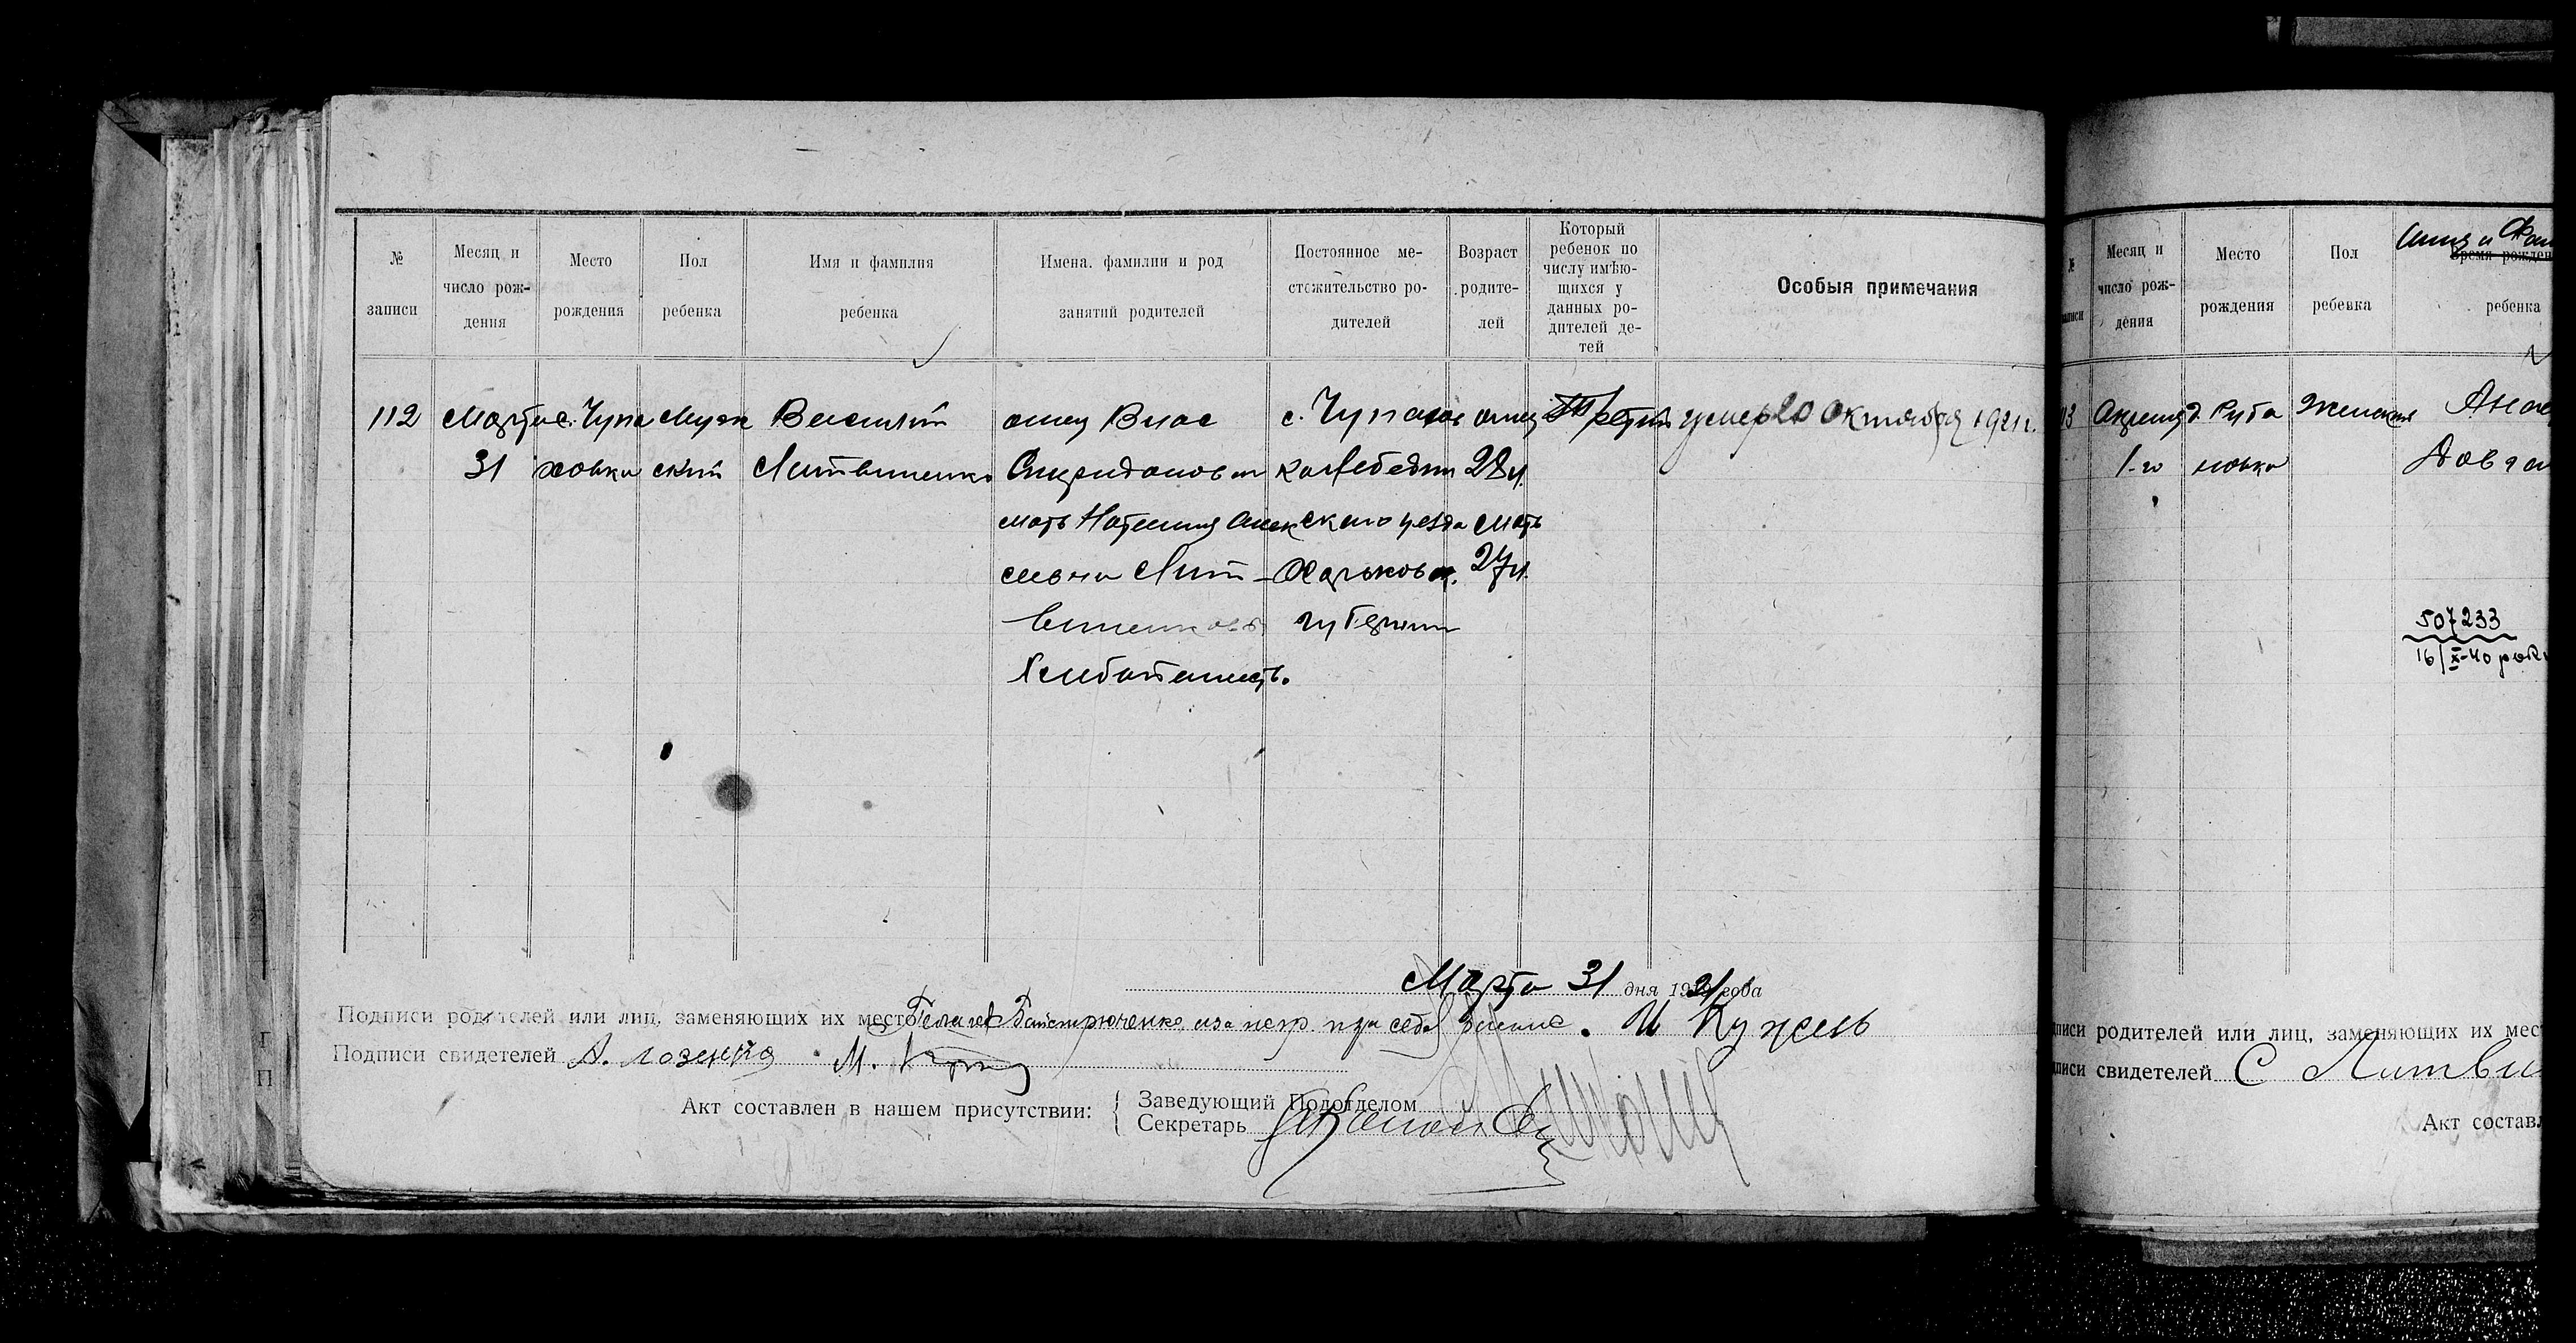 № записи
Месяц и число рождения
Место рождения
Пол ребенка
Имя и фамилия ребенка
Имена, фамилии и род занятий родителей
Постоянное местожительство родителей
Возраст родителей
Который ребенок по числу имѣющихся у данных родителей детей
Особыя примечания
112
Марта
31
с. Чупа
ховка
Муж
ской
Василий
Литвиненко
отец Влас
Спиридонович
мать Наталия Алек
сеевна Лит-
виненкова
Хлебопашест.
с. Чупахов
ка Лебедин
ского уезда
Харьков.
губернии
отец
28 л.
мать
27 л.
Третий
умер 20 Октября 1921 г.
Марта 31 дня 1921 года
Подписи родителей или лиц, заменяющих их место
И Кужель
Подписи свидетелей А. Лозенко М.
Акт составлен в нашем присутствии:
Заведующий Подотделом
Секретарь
№ записи
Месяц и число рождения
Место рождения
Пол ребенка
Имя и Фам
Время рожден
ребенка
13
Апреля
1-го
Женская
507233
16/X-40 рок
писи родителей или лиц, заменяющих их мес
писи свидетелей С Литви
Акт составл